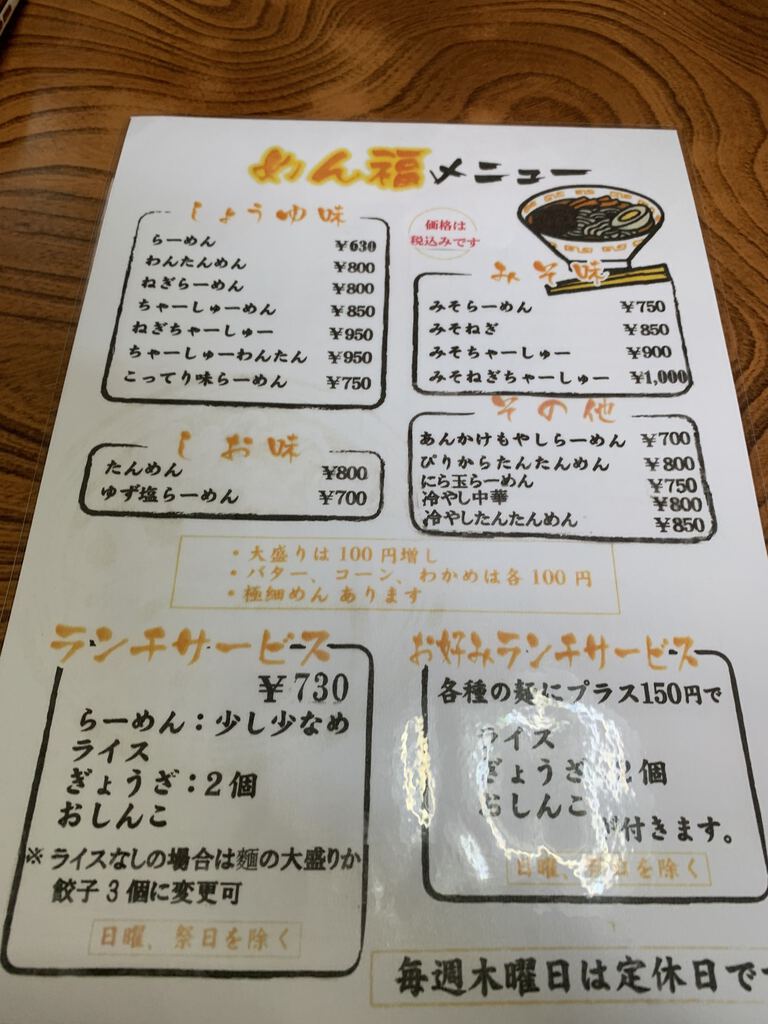 めん福メニュー
しょうゆ味
らーめん ￥630
わんたんめん ￥800
ねぎらーめん ￥800
ちゃーしゅーめん ￥850
ねぎちゃーしゅー ￥950
ちゃーしゅーわんたん ￥950
こってり味らーめん ￥750
価格は
税込みです
みそ味
みそらーめん ￥750
みそねぎ ￥850
みそちゃーしゅー ￥900
みそねぎちゃーしゅー ￥1,000
しお味
たんめん ￥800
ゆず塩らーめん ￥700
その他
あんかけもやしらーめん ￥700
ぴりからたんたんめん ￥800
にら玉らーめん ￥750
冷やし中華 ￥800
冷やしたんたんめん ￥850
・大盛りは100円増し
・バター、コーン、わかめは各100円
・極細めん あります
ランチサービス
￥730
らーめん：少し少なめ
ライス
ぎょうざ：2個
おしんこ
※ライスなしの場合は麵の大盛りか
餃子3個に変更可
日曜、祭日を除く
お好みランチサービス
各種の麺にプラス150円で
ライス
ぎょうざ：2個
おしんこ
が付きます。
日曜、祭日を除く
毎週木曜日は定休日で